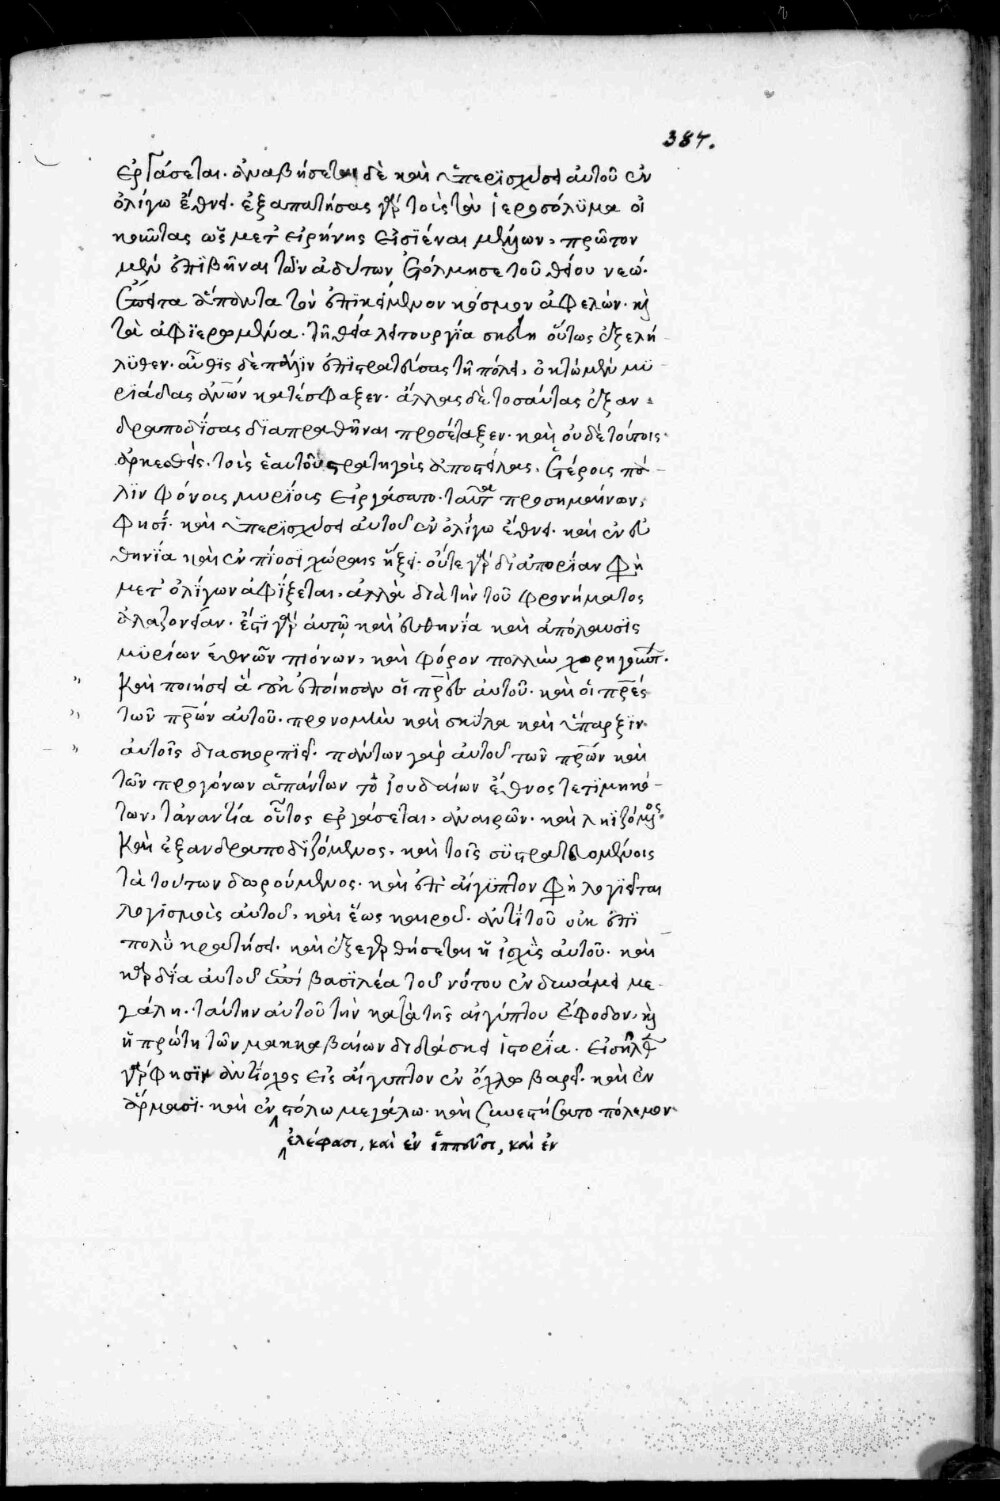 387.
ἐργάσεται. ἀναβήσεται δὲ καὶ ὑπερϊσχύσει αὐτοῦ ἐν
ὀλίγω ἔθνει. ἐξαπατήσας γὰρ τοὺς τὰ ἱεροσόλϋμα οἰ
κοῦντας ὡς μετ' εἰρήνης εἰσϊέναι μέλλων, πρῶτον
μὲν ἐπϊβῆναι τῶν ἀδύτων ἐτόλμησε τοῦ θείου νεώ.
ἔπειτα ἅπαντα τὸν ἐπικείμενον κόσμον ἀφελών. καὶ
τὰ ἀφϊερωμένα. τῆ θεία λειτουργία σκεύη οὕτως ἐξελή
λϋθεν. αὖθϊς δὲ πάλϊν ἐπϊστρατεύσας τῆ πόλει, ὀκτὼ μὲν μϋ
ρϊάδας ἀνων κατέσφαξεν. ἄλλας δὲ τοσαύτας ἐξαν
δραποδΐσας δϊαπραθῆναι προσέταξεν. καὶ οὐδὲ τούτοις
ἀρκεσθεὶς. τοὺς ἑαυτοῦ στρατηγοὺς ἀποστείλας. ἑτέροις πά
λϊν φόνοις μυρΐοις εἰργάσατο. ταῦτα προσημαίνων,
φησΐ. καὶ ὑπερϊσχύσει αὐτοῦ ἐν ὀλίγω ἔθνει. καὶ ἐν εὐ
θηνία καὶ ἐν πΐοσϊ χώραις ἥξει. οὔτε γὰρ δϊ ἀπορΐαν φη
μετ' ὀλίγων ἀφΐξεται. ἀλλὰ διὰ τὴν τοῦ φρονήματος
ἀλαζονείαν. ἔστϊ γὰρ αὐτῶ καὶ εὐθηνΐα καὶ ἀπόλαυσϊς
μϋρίων ἐθνῶν πιόνων, καὶ φόρον πολλὺν χορηγούντ.
Καὶ ποιήσει ἃ οὐκ ἐποίησαν οἱ πρεσ αὐτοῦ. καὶ οἱ πρες
τῶν πρων αὐτοῦ. προνομὴν καὶ σκῦλα καὶ ὕπαρξϊν
αὐτοῖς διασκορπϊεῖ. πάντων γὰρ αὐτοῦ τῶν πρων καὶ
τῶν προγόνων ἁπάντων τὸ ἰουδαίων ἔθνος τετϊμηκό
των, τἀναντΐα οὗτος ἐργάσεται. ἀναιρῶν. καὶ ληϊζόμενος.
Καὶ ἐξανδραποδϊζόμενος. καὶ τοῖς σϋστρατευομένοις
τὰ τούτων δωρούμενος. καὶ ἐπ' αἴγϋπτον φη λογϊεῖται
λογϊσμοὺς αὐτοῦ, καὶ ἕως καιροῦ. ἀντΐ τοῦ οὐκ ἐπϊ
πολὺ κρατήσει. καὶ ἐξεγερθήσεται ἡ ἰσχὺς αὐτοῦ. καὶ
καρδΐα αὐτοῦ ἐπὶ βασϊλέα τοῦ νότου ἐν δυνάμει με
γάλη. ταύτην αὐτοῦ τὴν κατὰ τῆς αἰγύπτου ἔφοδον, καὶ
ἡ πρώτη τῶν μακκαβαίων διδάσκει ἱστορΐα. εἰσῆλθε
γάρ φησϊν ἀντΐοχος εἰς αἴγυπτον ἐν ὄχλω βαρεῖ. καὶ ἐν
ἅρμασϊ. καὶ ἐν στόλω μεγάλω. καὶ συνεστήσατο πόλεμον
ἐλέφασι, καὶ ἐν ἵππουσι, καὶ ἐν